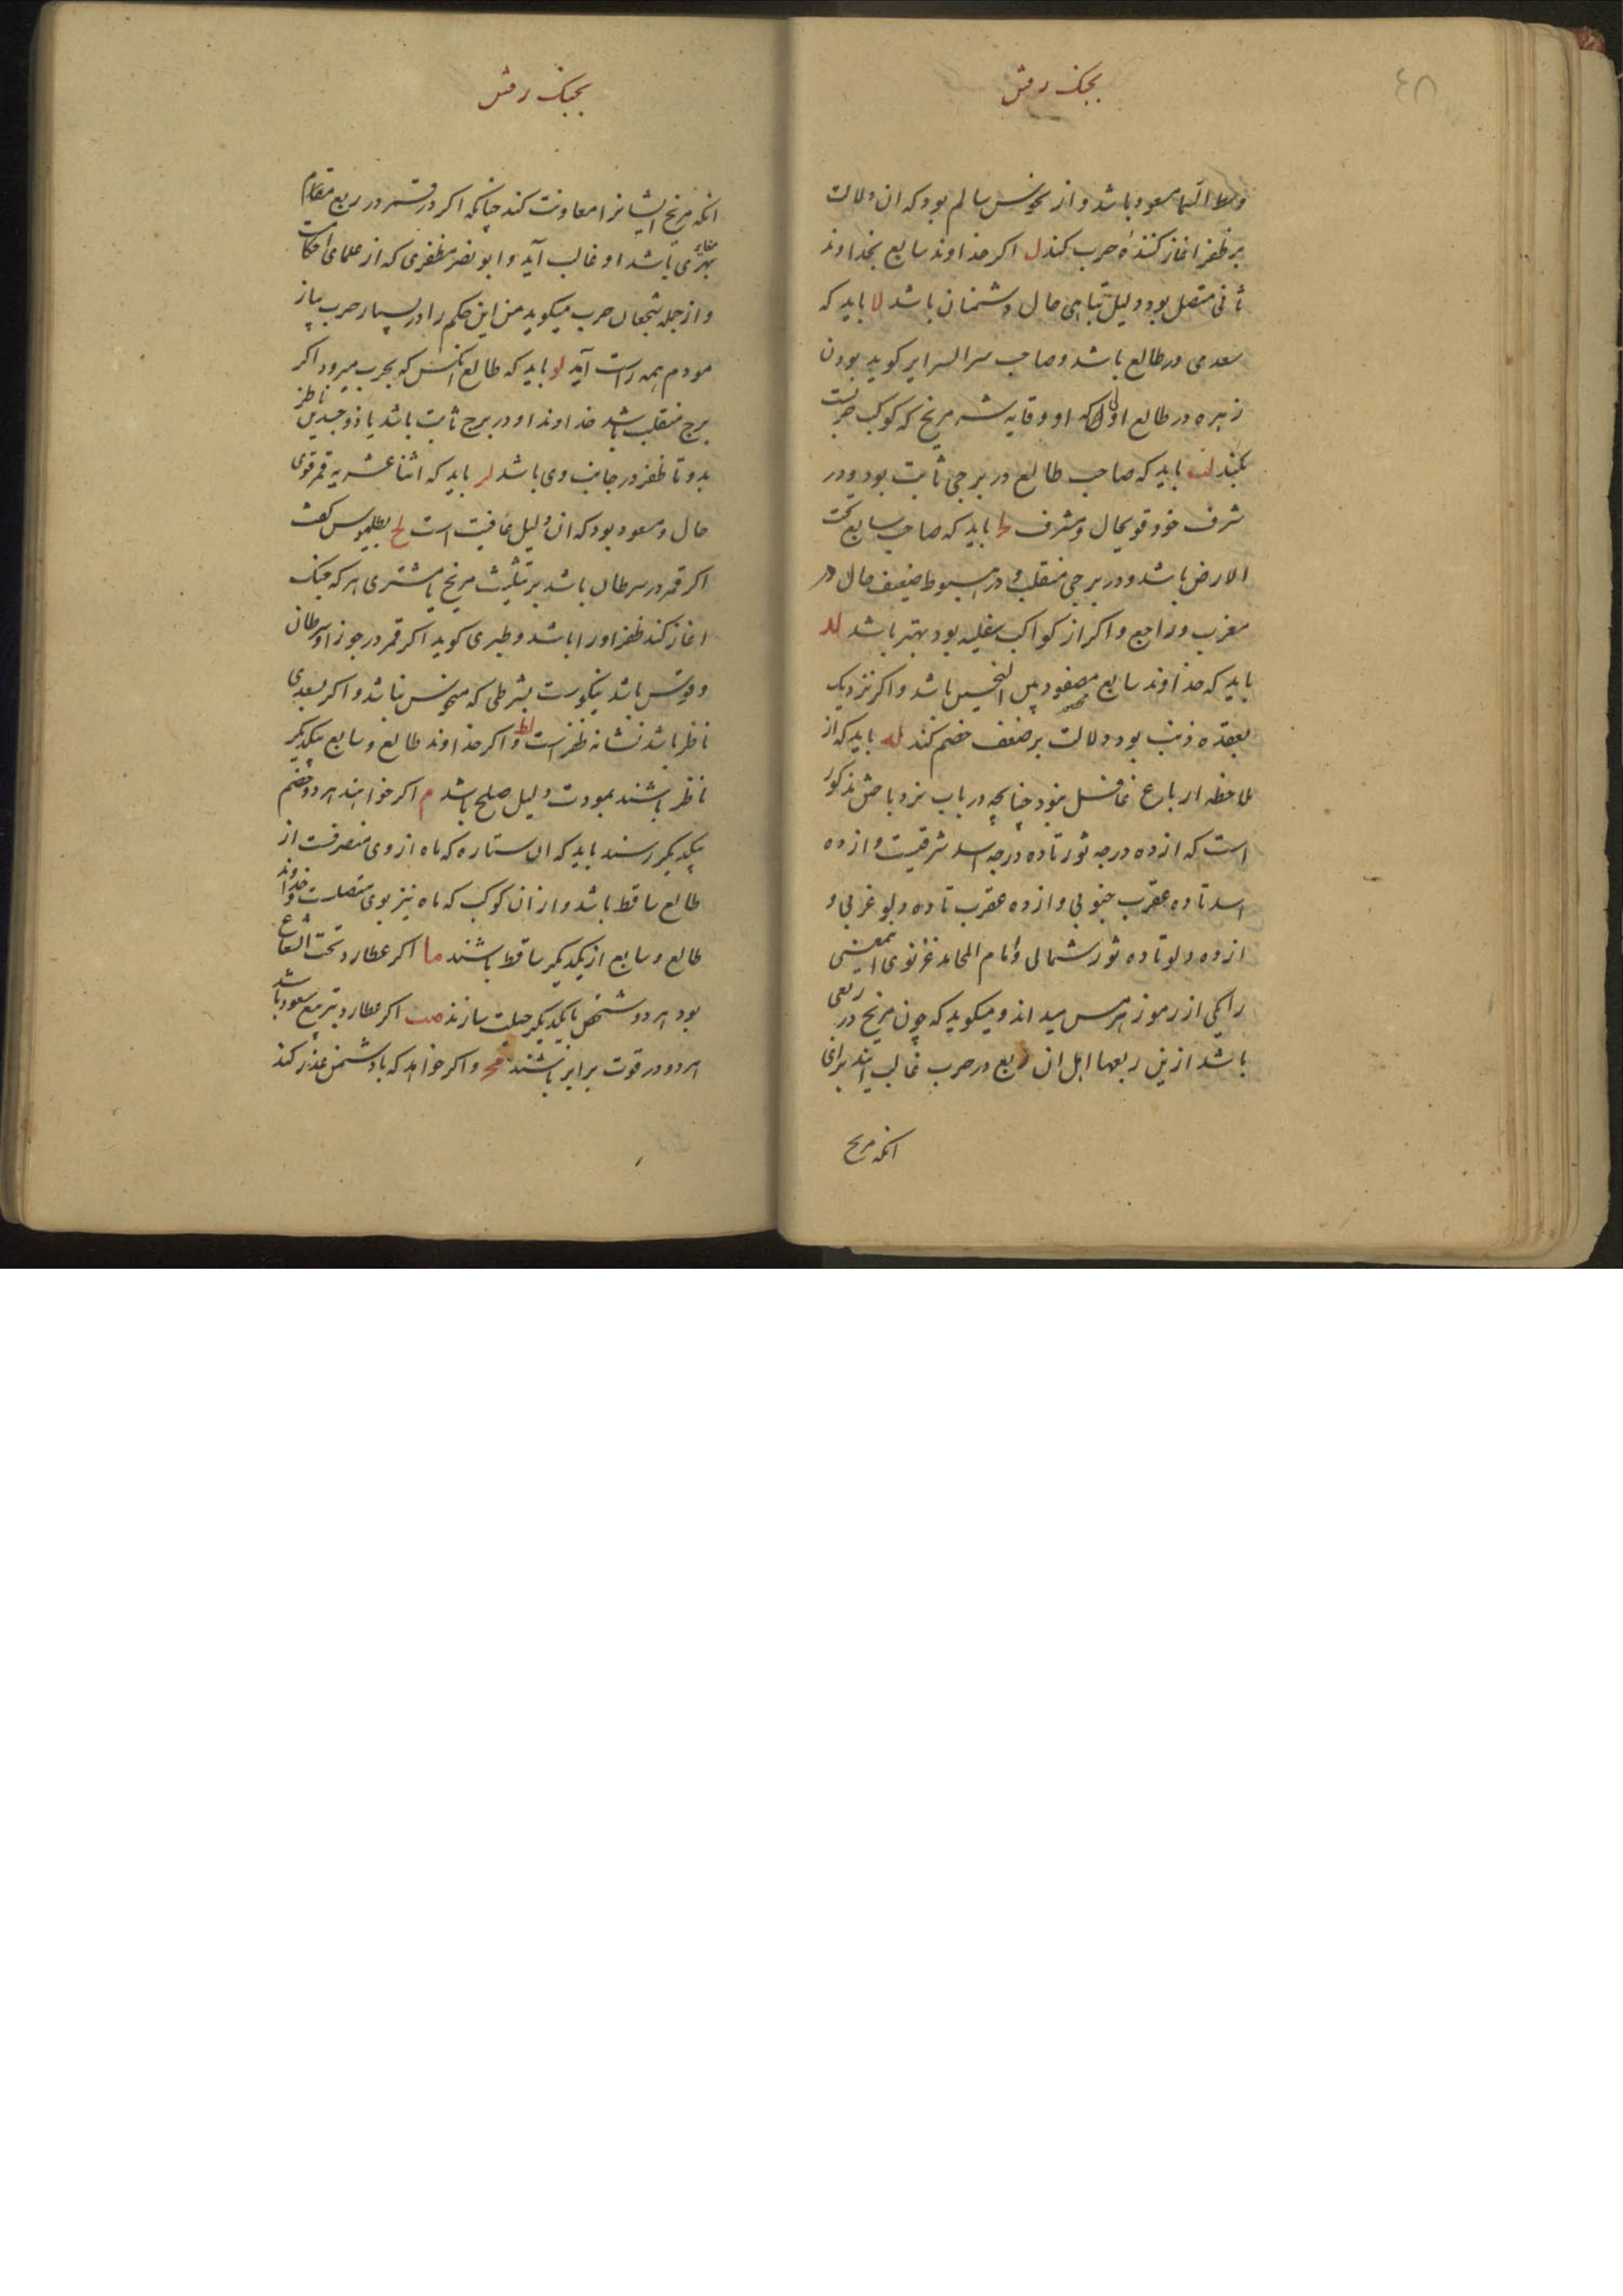 ٤٨
بجنک رفتن
وسط السما مسعود باشد و از نحوس سالم بود که ان دلالت
بر ظفر اغاز کننده حرب کند ل اکر خداوند سابع بخداوند
ثانی متصل بود دلیل تباهی حال دشمنان باشد لا باید که
سعدی در طالع باشد و صاحب سرالسرایر کوید بودن
زهره در طالع اولی که او وقایه شر مریخ که کوکب حربست
بکند لب باید که صاحب طالع در برجی ثابت بود و در
شرف خود قویحال و مشرف لج باید که صاحب سابع تحت
الارض باشد و در برجی منقلب و در هبوط ضعیف حال در
مغرب و راجع و اکر از کواکب سفلیه بود بهتر باشد لد
باید که خداوند سابع بین النحسین باشد و اکر نزدیک
بعقده ذنب بود دلالت بر ضعف خصم کند له باید که از
ملاحظه ارباع غافل نبود چنانچه در باب نرد باختن مذکور
است که از ده درجه ثور تا ده درجه اسد شرقیست و از ده
اسد تا ده عقرب جنوبی و از ده عقرب تا ده دلو غربی و
از ده دلو تا ده ثور شمالی و امام المحامد غزنوی این معنی
را یکی از رموز هرمس میداند و میکوید که چون مریخ در ربعی
باشد ازین ربعها اهل ان ربع در حرب غالب ایند برای
انکه مریخ
بجنک رفتن
انکه مریخ ایشانرا معاونت کند چنانکه اکر در قمر در ربع مقام
بهتری باشد او غالب آید و ابو نصر مظفری که از علمای احکامست
و از جمله شجعان حرب میکوید من این حکم را در بسیار حرب بیاز
مودم همه راست آید لو باید که طالع انکس که بحرب میرود اکر
برج منقلب باشد خداوند او در برج ثابت باشد یا ذوجسدین ناظر
بدو تا ظفر در جانب وی باشد لز باید که اثنا عشریه قمر قوی
حال و مسعود بود که ان دلیل عافیت است لح بطلمیوس کفت
اکر قمر در سرطان باشد بر تثلیث مریخ یا مشتری هر که جنک
اغاز کند ظفر او را باشد و طبری کوید اکر قمر در جوزا و سرطان
و قوس باشد نیکوست بشرطی که منحوس نباشد و اکر بسعدی
ناظر باشد نشانه ظفر است لط و اکر خداوند طالع و سابع بیکدیکر
ناظر باشند بمودت دلیل صلح باشد م اکر خواهند هر دو خصم
بیکدیکر رسند باید که ان ستاره که ماه از وی منصرفست از
طالع ساقط باشد و از ان کوکب که ماه نیز بوی متصلست و خداوند
طالع و سابع از یکدیکر ساقط باشند ما اکر عطارد تحت الشعاع
بود هر دو شخص با یکدیکر حیلت سازند مب اکر عطارد بتربیع سعود باشد
هر دو در قوت برابر باشند مج و اکر خواهد که با دشمن غدر کند